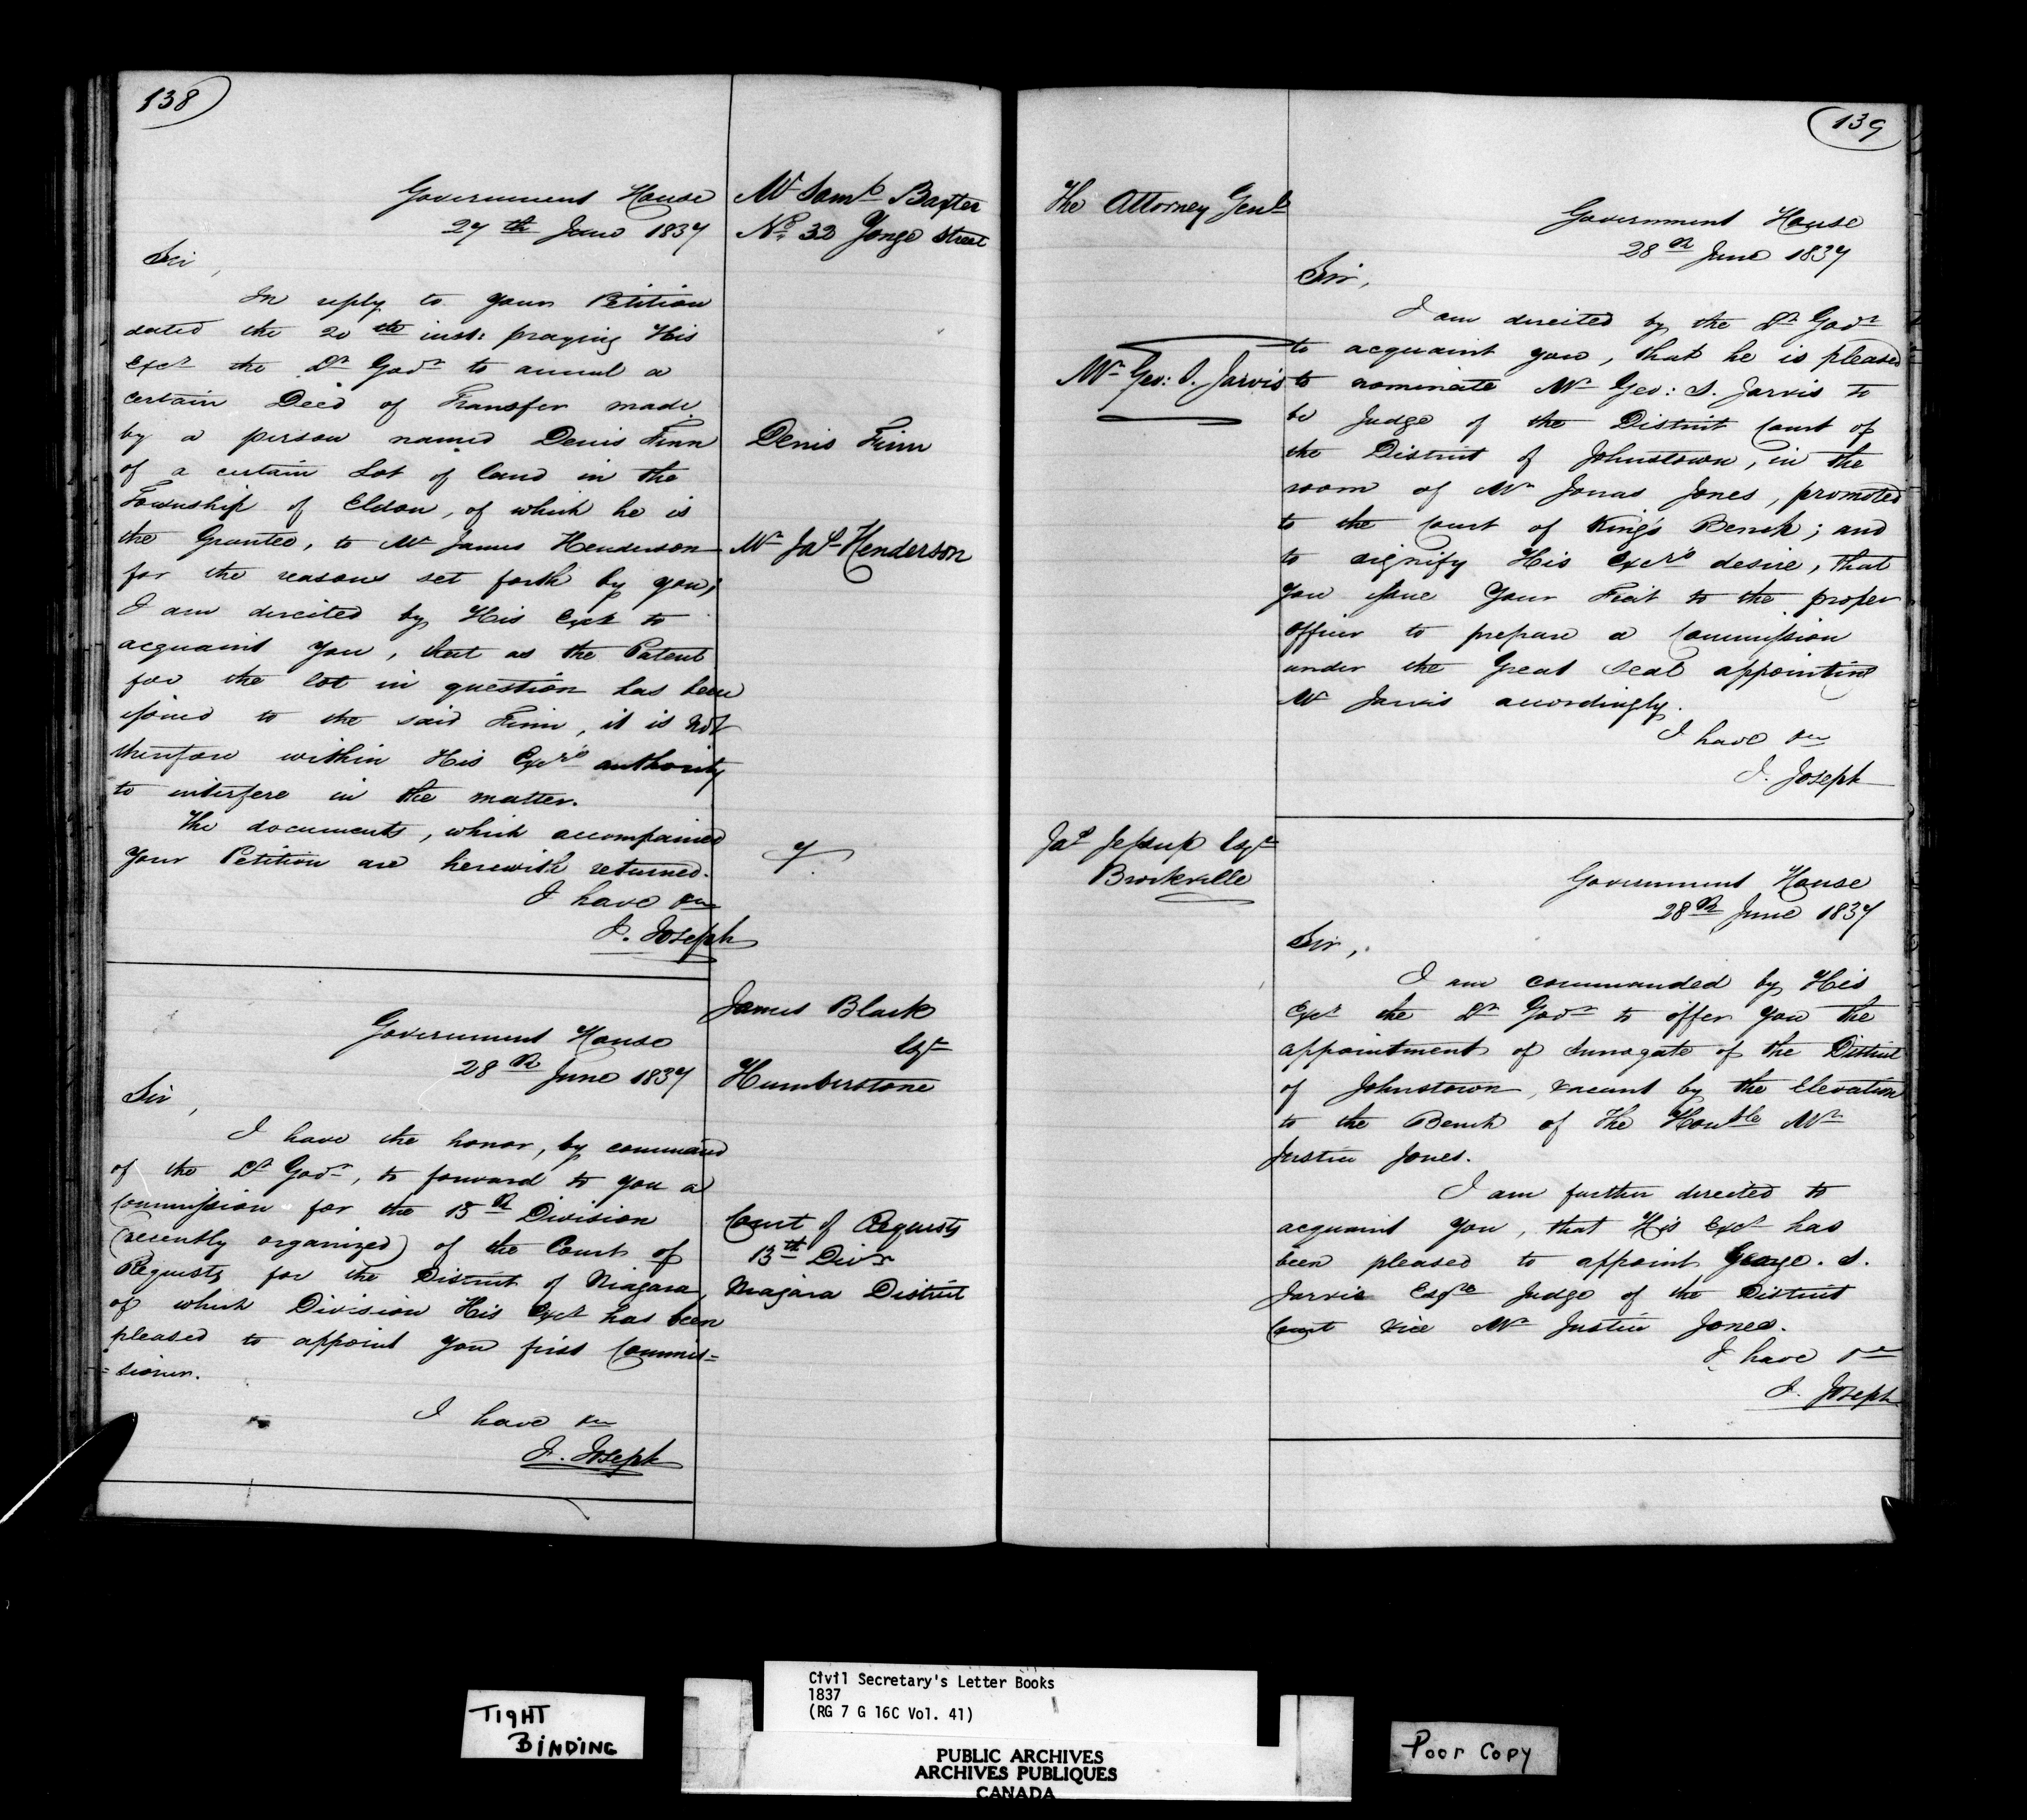 138
Government House
27th June 1837
Mr Saml Baxter
No. 32 Yonge Street
Sir,
In reply to your Petition
dated the 20th inst: praying His
Excy the Lt Govr to annul a
certain Deed of Transfer made
by a person named Denis Finn
Denis Finn
of a certain Lot of land in the
Township of Eldon, of which he is
the Grantee, to Mr James Henderson
Mr Jas Henderson
for the reasons set forth by you;
I am directed by His Excy to
acquaint you, that as the Patent
for the lot in question has been
issued to the said Finn, it is not
therefore within His Excy's authority
to interfere in the matter.
The documents, which accompanied
your Petition are herewith returned.
I have &c
J. Joseph
James Black
Esqr
Humberstone
Government House
28th June 1837
Sir,
I have the honor, by command
of the Lt Govr, to forward to you a
Commission for the 13th Division
(recently organized) of the Court of
Requests for the District of Niagara,
of which Division His Excy has been
pleased to appoint you first Commis=
=sioner.
Court of Requests
13th Divn
Niagara District
I have &c
J. Joseph
139
The Attorney Genl
Government House
28th June 1837
Sir,
I am directed by the Lt Govr
to acquaint you, that he is pleased
Mr Geo: S. Jarvis
to nominate Mr Geo: S. Jarvis to
be Judge of the District Court of
the District of Johnstown, in the
room of Mr Jonas Jones, promoted
to the Court of King's Bench; and
to signify His Excy's desire, that
you issue your Fiat to the proper
officer to prepare a Commission
under the Great Seal appointing
Mr Jarvis accordingly.
I have &c
J. Joseph
Jas Jessup Esqr
Brockville
Government House
28th June 1837
Sir,
I am commanded by His
Excy the Lt Govr to offer you the
appointment of Surrogate of the District
of Johnstown, vacant by the Elevation
to the Bench of The Honble Mr
Justice Jones.
I am further directed to
acquaint you, that His Excy has
been pleased to appoint George. S.
Jarvis Esqre Judge of the District
Court vice Mr Justice Jones.
I have &c
J. Joseph
TIGHT
BINDING
Civil Secretary's Letter Books
1837
(RG 7 G 16C Vol. 41)
PUBLIC ARCHIVES
ARCHIVES PUBLIQUES
CANADA
Poor Copy